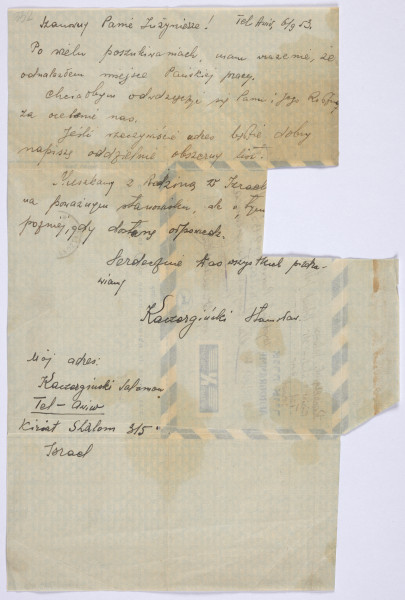 Szanowny Panie Inżynierze! Tel-Aviv, 6/9 53.
Po wielu poszukiwaniach, mam wrażenie, że
odnalazłem miejsce Pańskiej pracy.
Chciałbym odwdzięczyć się Panu i Jego Rodzinie
za ocalenie nas.
Jeśli rzeczywiście adres będzie dobry
napiszę oddzielnie obszerny list.
Mieszkamy z Rodziną w Izraelu
na poważnym stanowisku, ale o tym
później, gdy dostanę odpowiedź.
Serdecznie Was wszystkich pozdra-
wiamy
Kaczorgiński
Mój adres:
Kaczorgiński Salomon
Tel-Aviv
Kiriat Shalom 315
Izrael